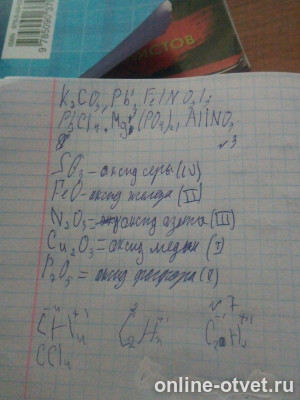 9785090
ИСТОВ
K₂CO₃, Pb
P Cl₄ Mg₃(PO₄)₂, Al(NO₃
8 №3
SO₃ - оксид серы (IV)
FeO - оксид железа (II)
N₂O₃ = оксид азота (III)
Cu₂O₃ = оксид медьи (I)
P₂O₅ = оксид фосфора
№7
C H₄ C₂H₄ C₂H₂
CCl₄
online-otvet.ru